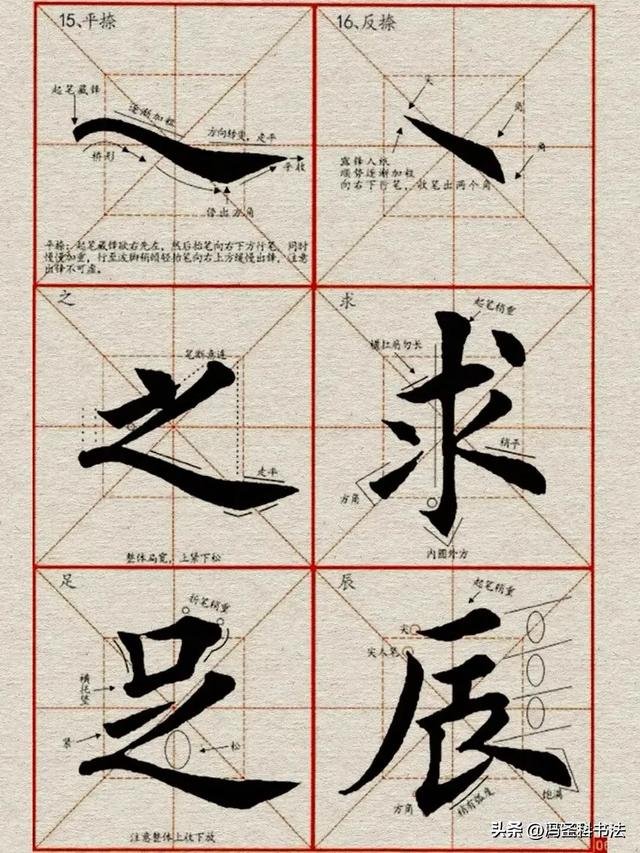 15、平捺
起笔藏锋
逐渐加粗
方向转变，走平
桥形
平收
停出方角
平捺：起笔藏锋欲右先左，然后抬笔向右下方行笔，同时
慢慢加重，行至波脚稍顿轻抬笔向右上方缓慢出锋，注意
出锋不可虚。
16、反捺
尖
角
角
露锋入纸
顺势逐渐加粗
向右下行笔，收笔出两个角
之
笔断意连
之
走平
整体扁宽，上紧下松
求
起笔稍重
横扛肩勿长
求
稍平
方角
内圆外方
足
折笔稍重
足
横托竖
紧
松
注意整体上收下放
辰
起笔稍重
尖
尖入笔
辰
方角
稍有弧度
饱满
头条 @冯圣科书法